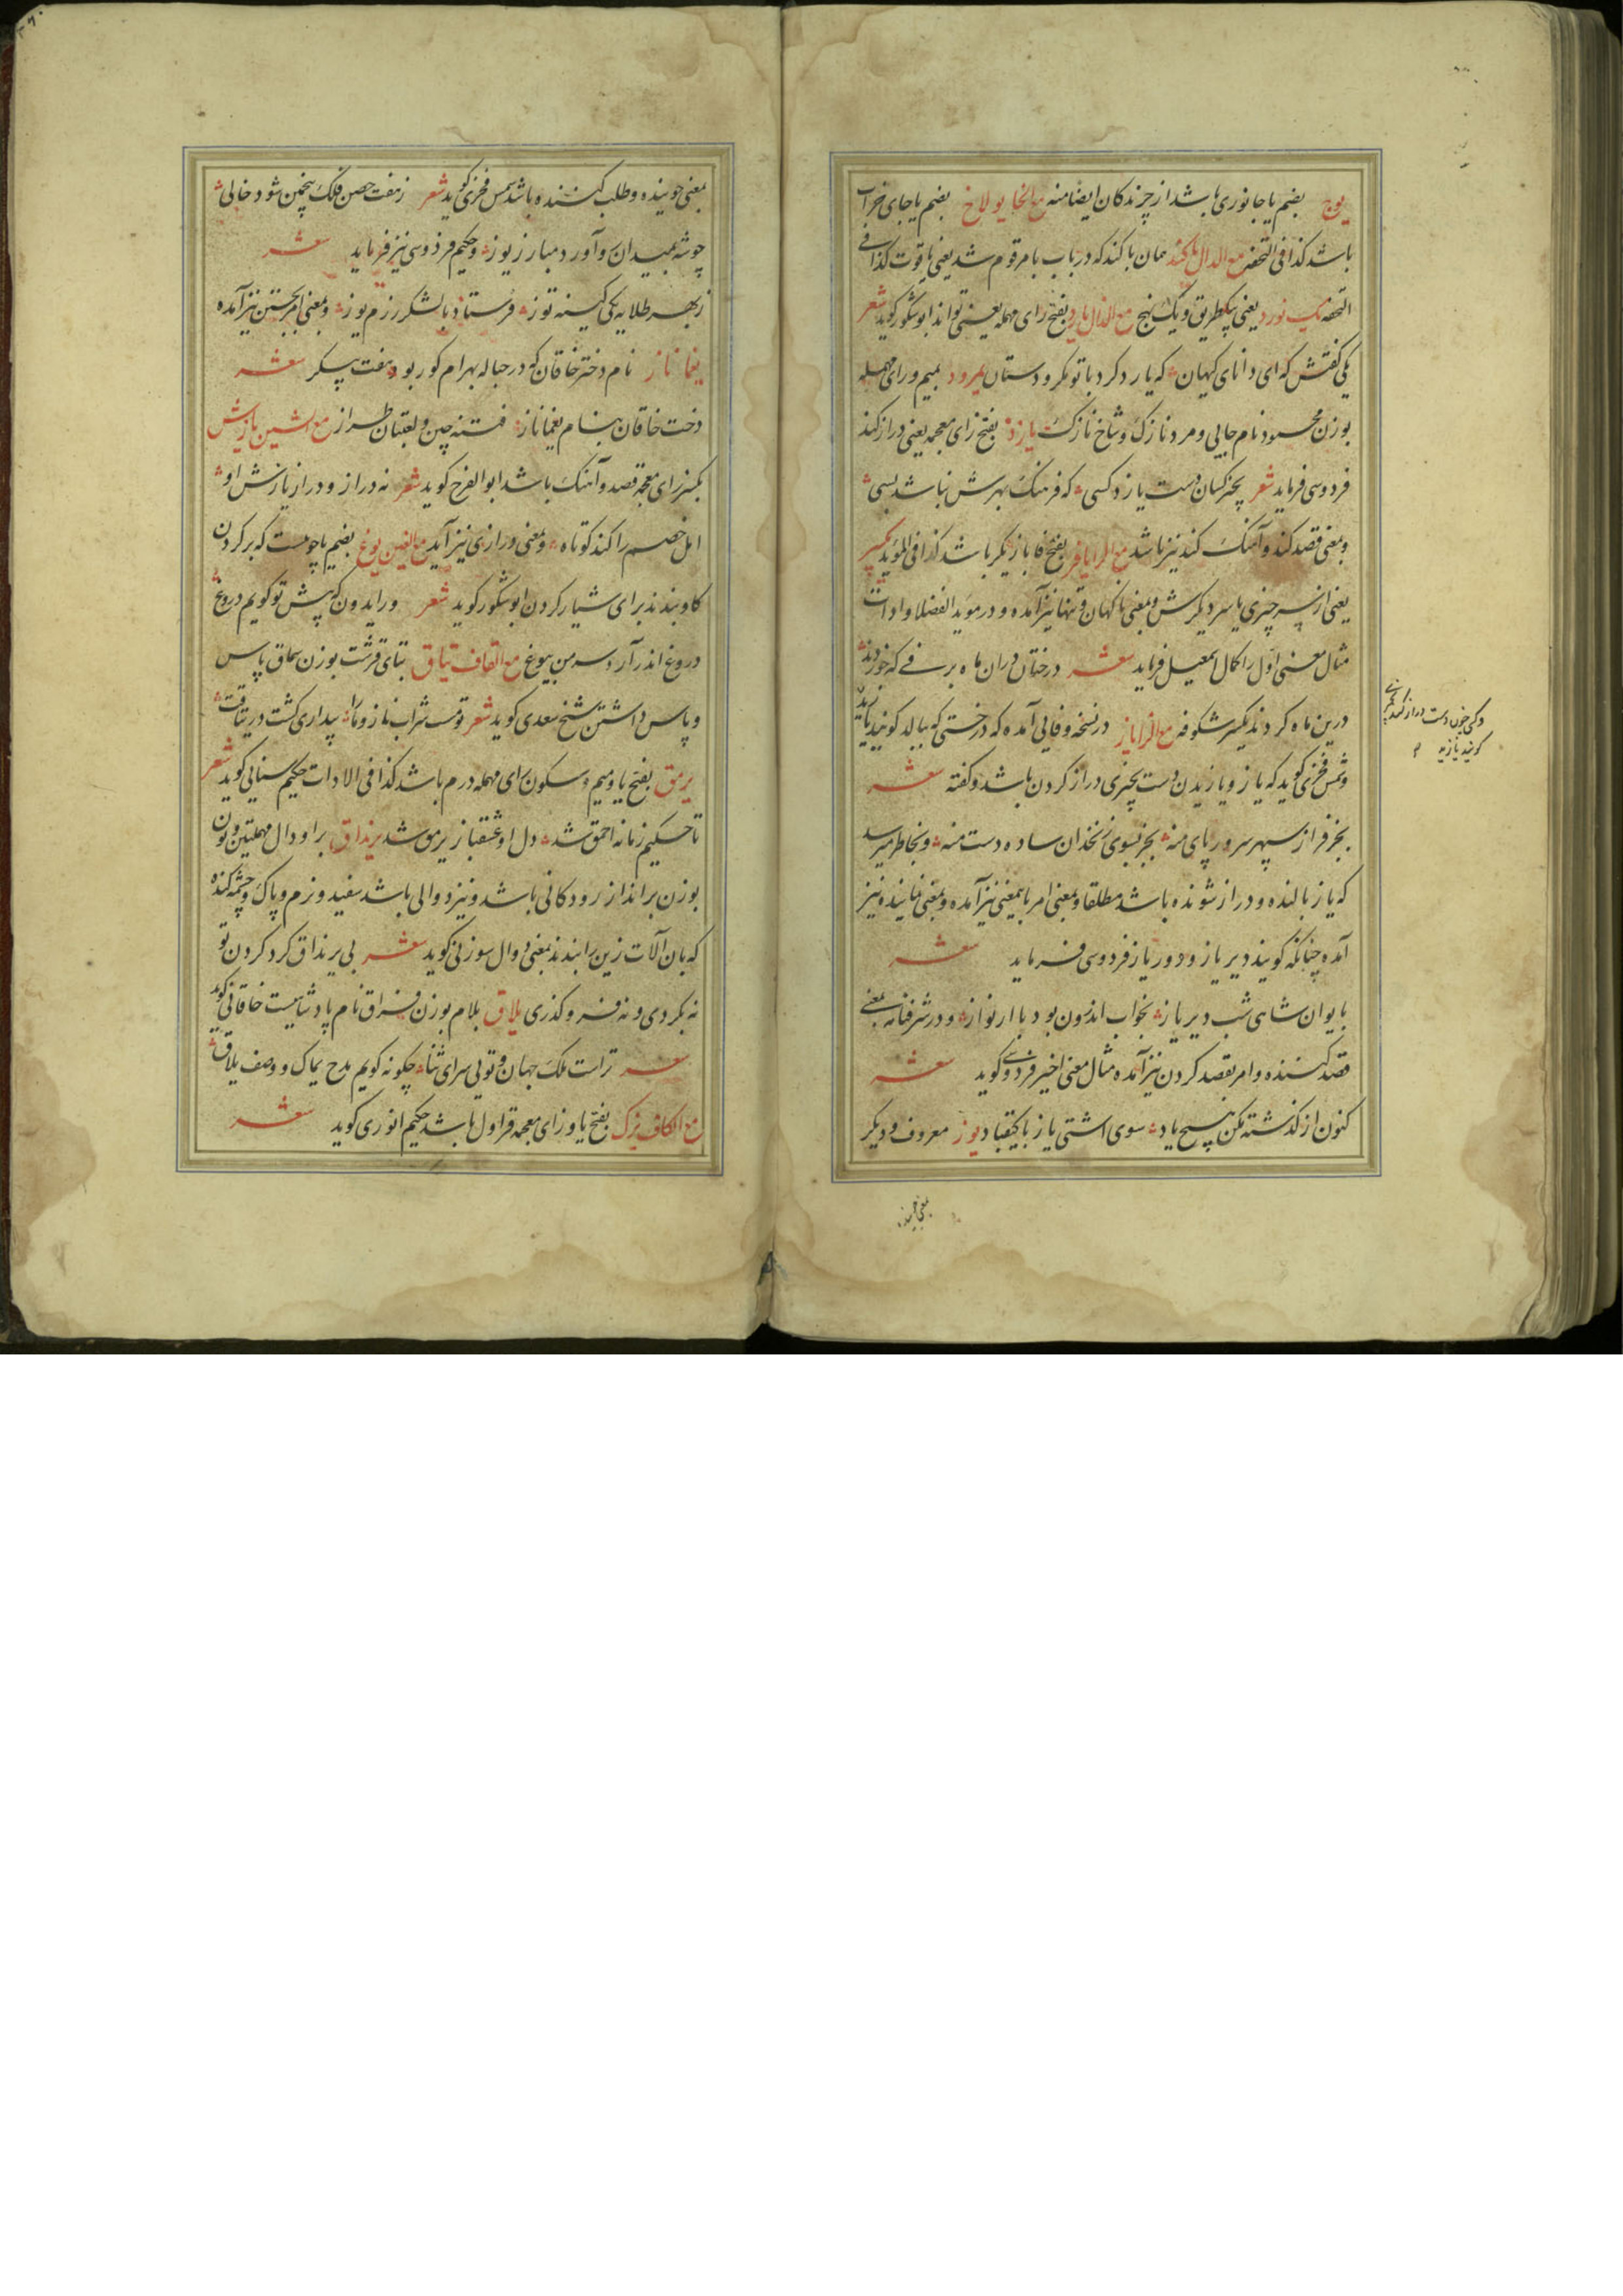 یوج بضم یا جانوری باشد از چرندکان ایضا منه مع الخا یولاخ بضم یا جای خراب
باشد کذا فی التحفه مع الدال یاکند همان باکند که در باب با مرقوم شد یعنی یاقوت کذا فی
التحفه یک نورد یعنی یکطریق و یک نهج مع الدال یارد بفتح رای مهمله یعنی تواند ابوشکور کوید شعر
یکی کفتش که ای دانای کیهان که یارد کرد با تو مکر و دستان یمرود بمیم و رای مهمله
بوزن محسود نام جایی و مرد نازک و شاخ نازکست یازد بفتح زای معجمه یعنی دراز کند
فردوسی فرماید شعر بچیز کسان دست یازد کسی که فرهنک بهرش نباشد بسی
و بمعنی قصد کند و آهنک کند نیز باشد مع الرا یافر بفتح فا بازیکر باشد کذا فی المؤید یکسر
یعنی از سر چیزی یا سر دیکرش و بمعنی ناکهان و تنها نیز آمده و در موید الفضلا و ادات
مثال معنی اول را کمال اسمعیل فرماید شعر درختان دران ماه برفی که خوردند
درین ماه کردند یکسر شکوفه مع الزا یاز در نسخه وفایی آمده که درختی که ببالد کویند یازید
و شمس فخری کوید که یاز و یازیدن دست بچیزی دراز کردن باشد و کفته شعر
بجز فراز سپهر سرور پای منه بجز بسوی زنخدان ساده دست منه و بخاطر میرسد
که یاز بالنده و دراز شونده باشد مطلقا و بمعنی امر باینمعنی نیز آمده و بمعنی نماینده نیز
آمده چنانکه کویند دیریاز و دوریاز فردوسی فرماید شعر
بایوان شاهی شب دیریاز بخواب اندرون بود با ارنواز و در شرفنامه بمعنی
قصد کننده و امر بقصد کردن نیز آمده مثال معنی اخیر فردوسی کوید شعر
کنون از کذشته مکن هیچ یاد سوی اشتی یاز با کیقباد یوز معروف و دیکر
و کسی چون دست دراز کند بچیزی
کویند یازید
بمعنی جوینده
بمعنی جوینده و طلب کننده باشد شمس فخری کوید شعر زهفت حصن فلک پنجمین شود خالی
چو شه بمیدان و آورد مبارز یوز و حکیم فردوسی نیز فرماید شعر
ز بهر طلایه یکی کینه توز فرستاد با لشکر رزم یوز و بمعنی امر بجستن نیز آمده
یغما ناز نام دختر خاقان که در حباله بهرام کور بود هفت پیکر شعر
دخت خاقان بنام یغماناز فتنه چین و لعبتان طراز مع الشین یازش
بکسر زای معجمه قصد و آهنک باشد ابوالفرج کوید شعر نه دراز و دراز یازش او
امل خصم را کند کوتاه و بمعنی درازی نیز آید مع الغین یوغ بضم یا چوبیست که بر کردن
کاو بندند برای شیار کردن ابوشکور کوید شعر ور ایدون که پیش تو کویم دروغ
دروغ اندر آرد سر من بیوغ مع القاف یتاق بتای قرشت بوزن سماق پاس
و پاس داشتن شیخ سعدی کوید شعر تو مست شراب ناز و ما را پیداری کشت در یتاقت
یرمق بفتح یا و میم و سکون رای مهمله درم باشد کذا فی الادات حکیم سنایی کوید شعر
تا حکیم زمانه احمق شد دل او عشقباز یرمق شد یرنداق برا و دال مهملتین و نون
بوزن برانداز رودکانی باشد و نیز دوالی باشد سفید و نرم و پاک و چشمه کنده
که بان آلات زین را بندند بمعنی دوال سوزنی کوید شعر بی یرنداق کرد کردن تو
نه بکردی و نه فروکذری یلاق بلام بوزن فراق نام پادشاهیست خاقانی کوید
شعر تراست ملک جهان و تویی سرای ثنا چکونه کویم مدح یماک و وصف یلاق
مع الکاف یزک بفتح یا و زای معجمه قراول باشد حکیم انوری کوید شعر